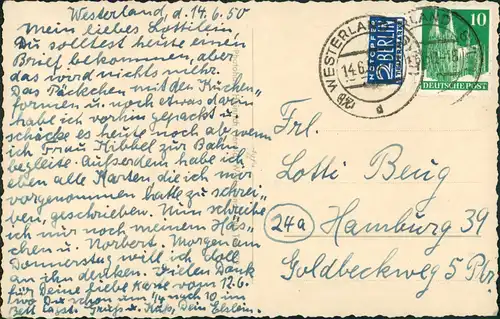 Westerland, d. 14.6.50
Mein liebes Lottilein,
Du solltest heute einen
Brief bekommen, aber
das word nichts mehr.
Das Päckchen mit den Kuchen=
formen u. noch etwas darin
habe ich vorhin gepackt u.
schicke es heute noch ab wenn
ich Frau Kibbel zur Bahn
begleite. Außerdem habe ich
eben alle Karten die ich mir
vorgenommen hatte zu schrei=
ben, geschrieben. Nun schreibe
ich nur noch meinem Häs=
chen u. Norbert. Morgen am
Donnerstag will ich doll
an ihn denken. Vielen Dank
für Deine liebe Karte vom 12.6.
wo Du schon um 1/4 nach 10 im
Bett lagst. Gruß u. Kuß, Dein
WESTERLAND
14.6.
a
NOTOPFER
2 BERLIN
STEUERMARKE
10
DEUTSCHE POST
Frl.
Lotti Beug
24a Hamburg 39
Goldbeckweg 5 Ptr.